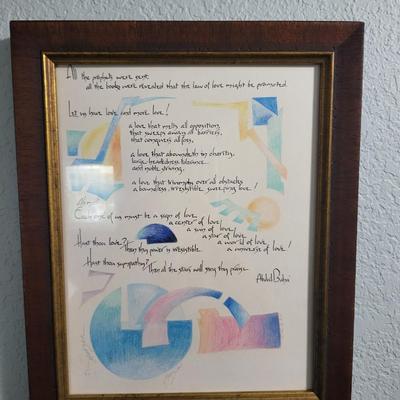 All the prophets were sent,
all the books were revealed that the law of love might be promoted.
Let us have love and more love!
a love that melts all opposition,
that sweeps away all barriers,
that conquers all foes,
a love that aboundeth in charity,
large-heartedness, tolerance
and noble striving,
a love that triumphs over all obstacles
a boundless, irresistible sweeping love!
Each one of us must be a sign of love
a center of love!
a sun of love!
a star of love
a world of love!
a universe of love!
Hast thou love? Then thy power is irresistible
Hast thou sympathy? Then all the stars will sing thy praise
Abdul Baha